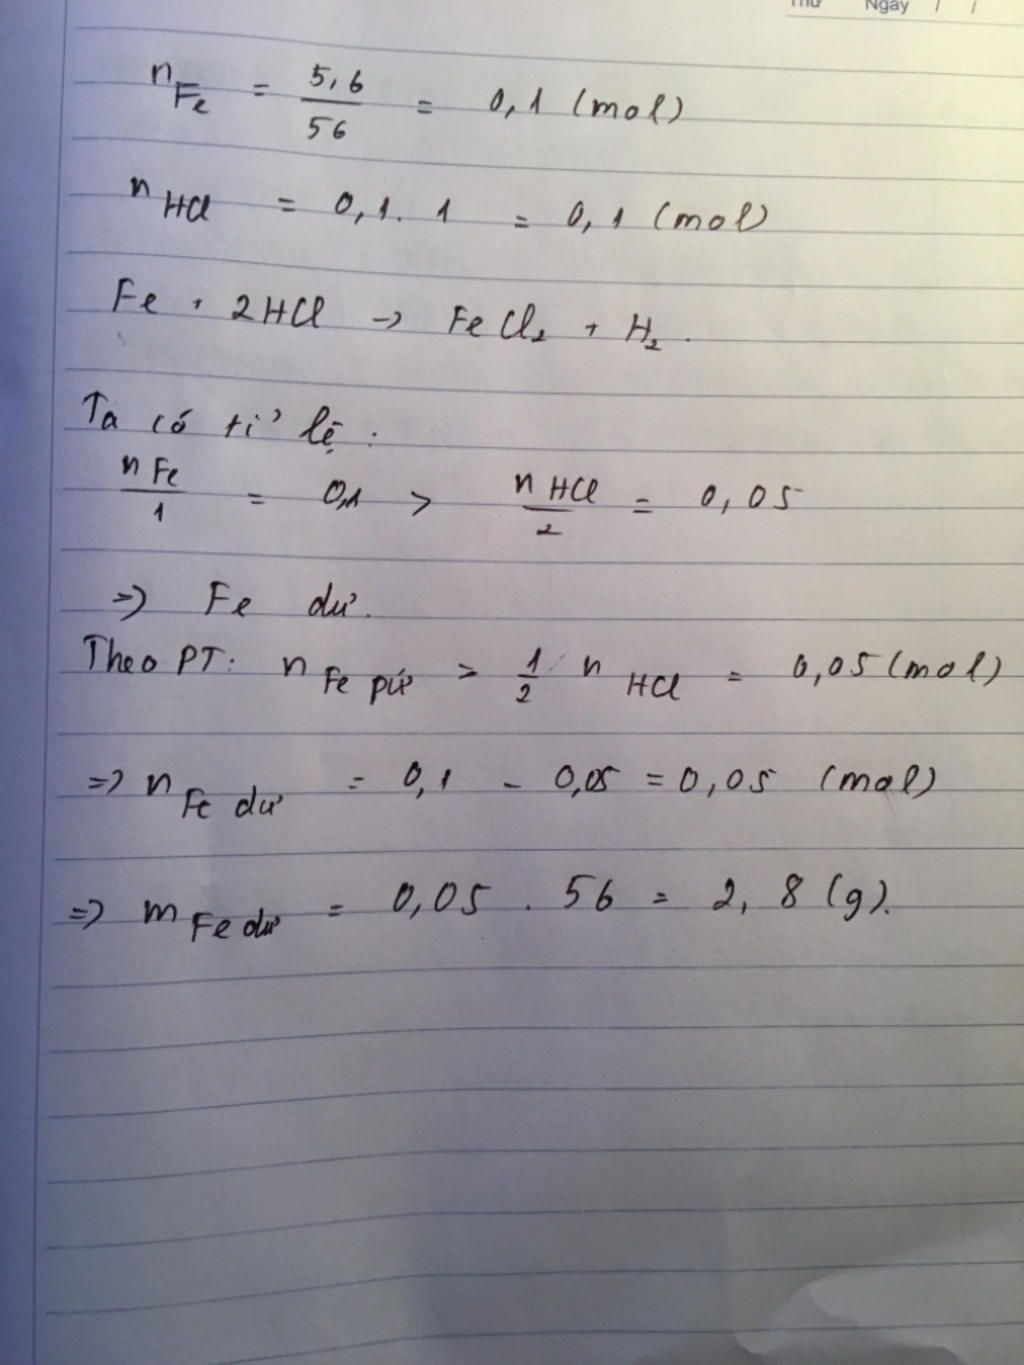 Thứ Ngày / /
n Fe = 5,6 / 56 = 0,1 (mol)
n HCl = 0,1 . 1 = 0,1 (mol)
Fe + 2HCl → FeCl₂ + H₂.
Ta có tỉ lệ :
n Fe / 1 = 0,1 > n HCl / 2 = 0,05
=> Fe dư.
Theo PT: n Fe pứ = 1/2 n HCl = 0,05 (mol)
=> n Fe dư = 0,1 - 0,05 = 0,05 (mol)
=> m Fe dư = 0,05 . 56 = 2,8 (g).